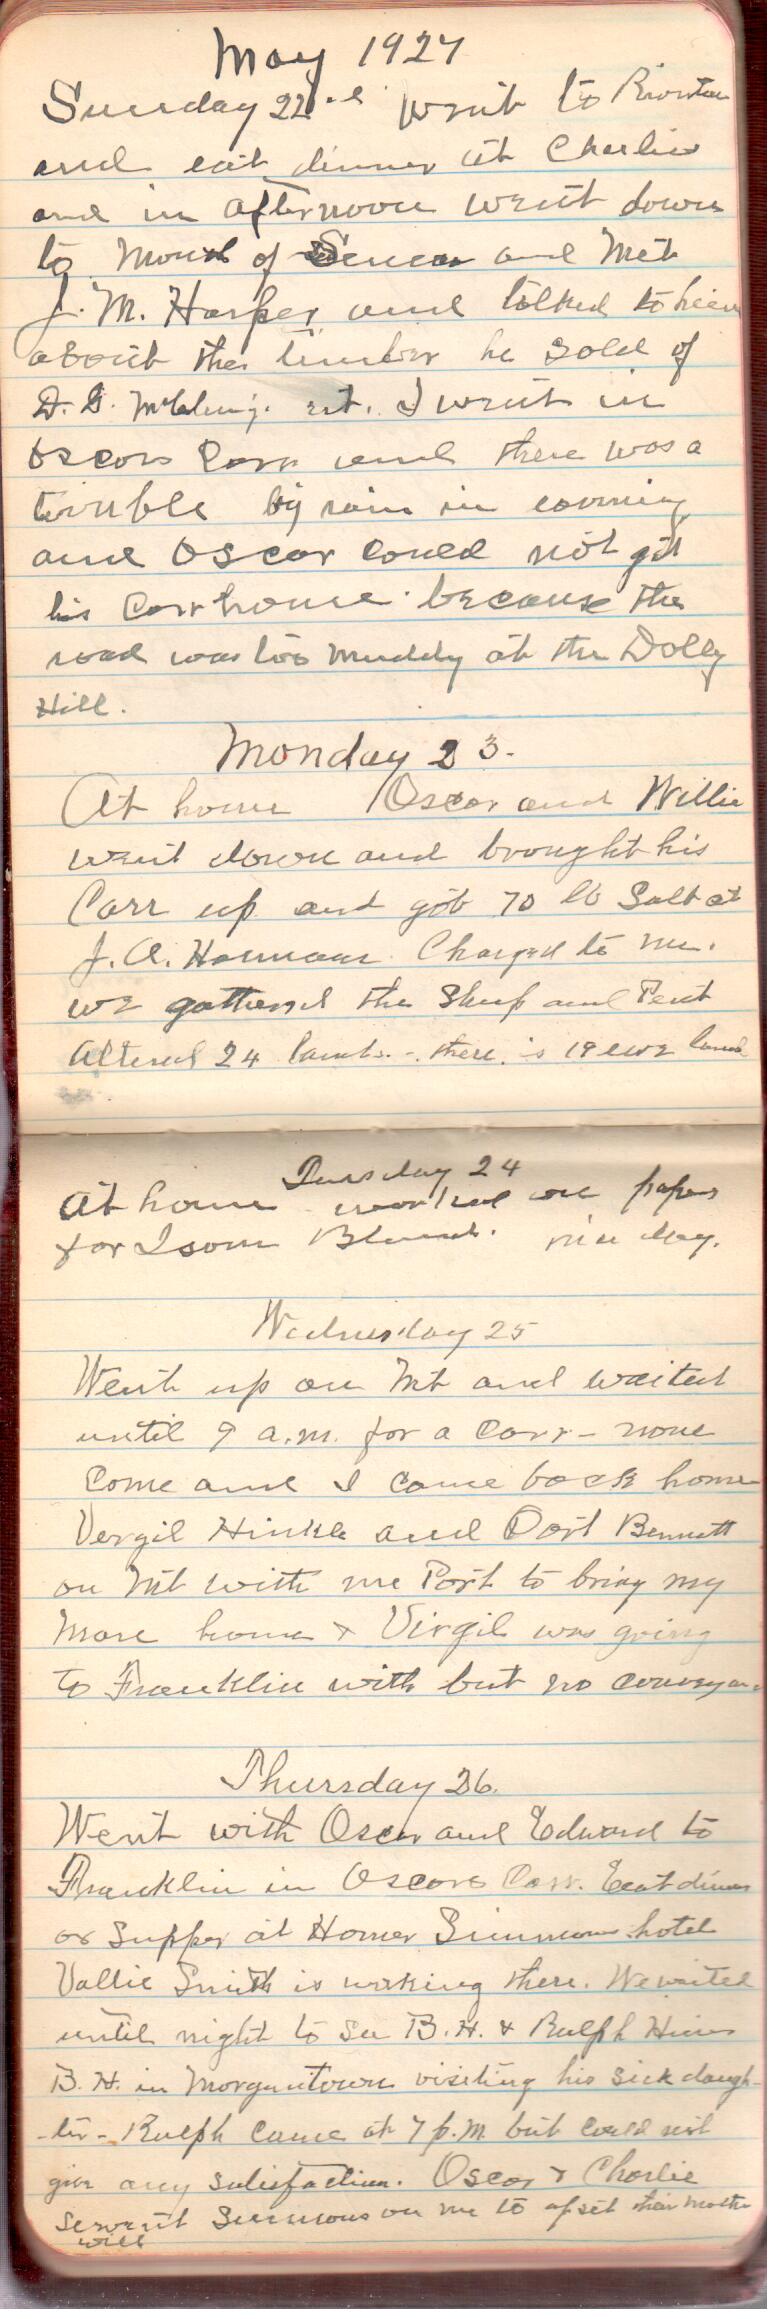 May 1927
Sunday 22nd went to Riverton
and eat dinner at Charlies
and in afternoon went down
to Mouth of Seneca and Met
J. M. Harper and talked to him
about the timber he sold of
D. G. I went in
Oscors Carr and there was a
terrible big rain in evening
and Oscar Could not git
his Carr home because the
road was too Muddy at the Dolly
Hill.
Monday 23.
At home Oscar and Willie
went down and brought his
Carr up and got 70 lb Salt at
J. A. Harmans Charged to me.
we gathered the Sheep and
Altered 24 lambs. - there is 19 ewe lambs
Tuesday 24
At home worked on papers
for Isom nice day.
Wednesday 25
Went up on Mt and waited
until 9 a.m. for a Carr - none
Come and I came back home
Vergil Hinkle and Port Bennett
on Mt with me Port to bring my
Mare home & Virgil was going
to Franklin with but no conveyan
Thursday 26.
Went with Oscar and Edward to
Franklin in Oscors Carr. Eeat dinner
or Supper at Homer Simmons hotel
Vallie Smith is working there. We waited
until night to see B. H. & Ralph Hiner
B. H. in Morgantown visiting his sick daugh-
-ter - Ralph Came at 7 p.m. but could not
give any satisfaction. Oscar & Charlie
Servent Summons on me to upset their mother
will